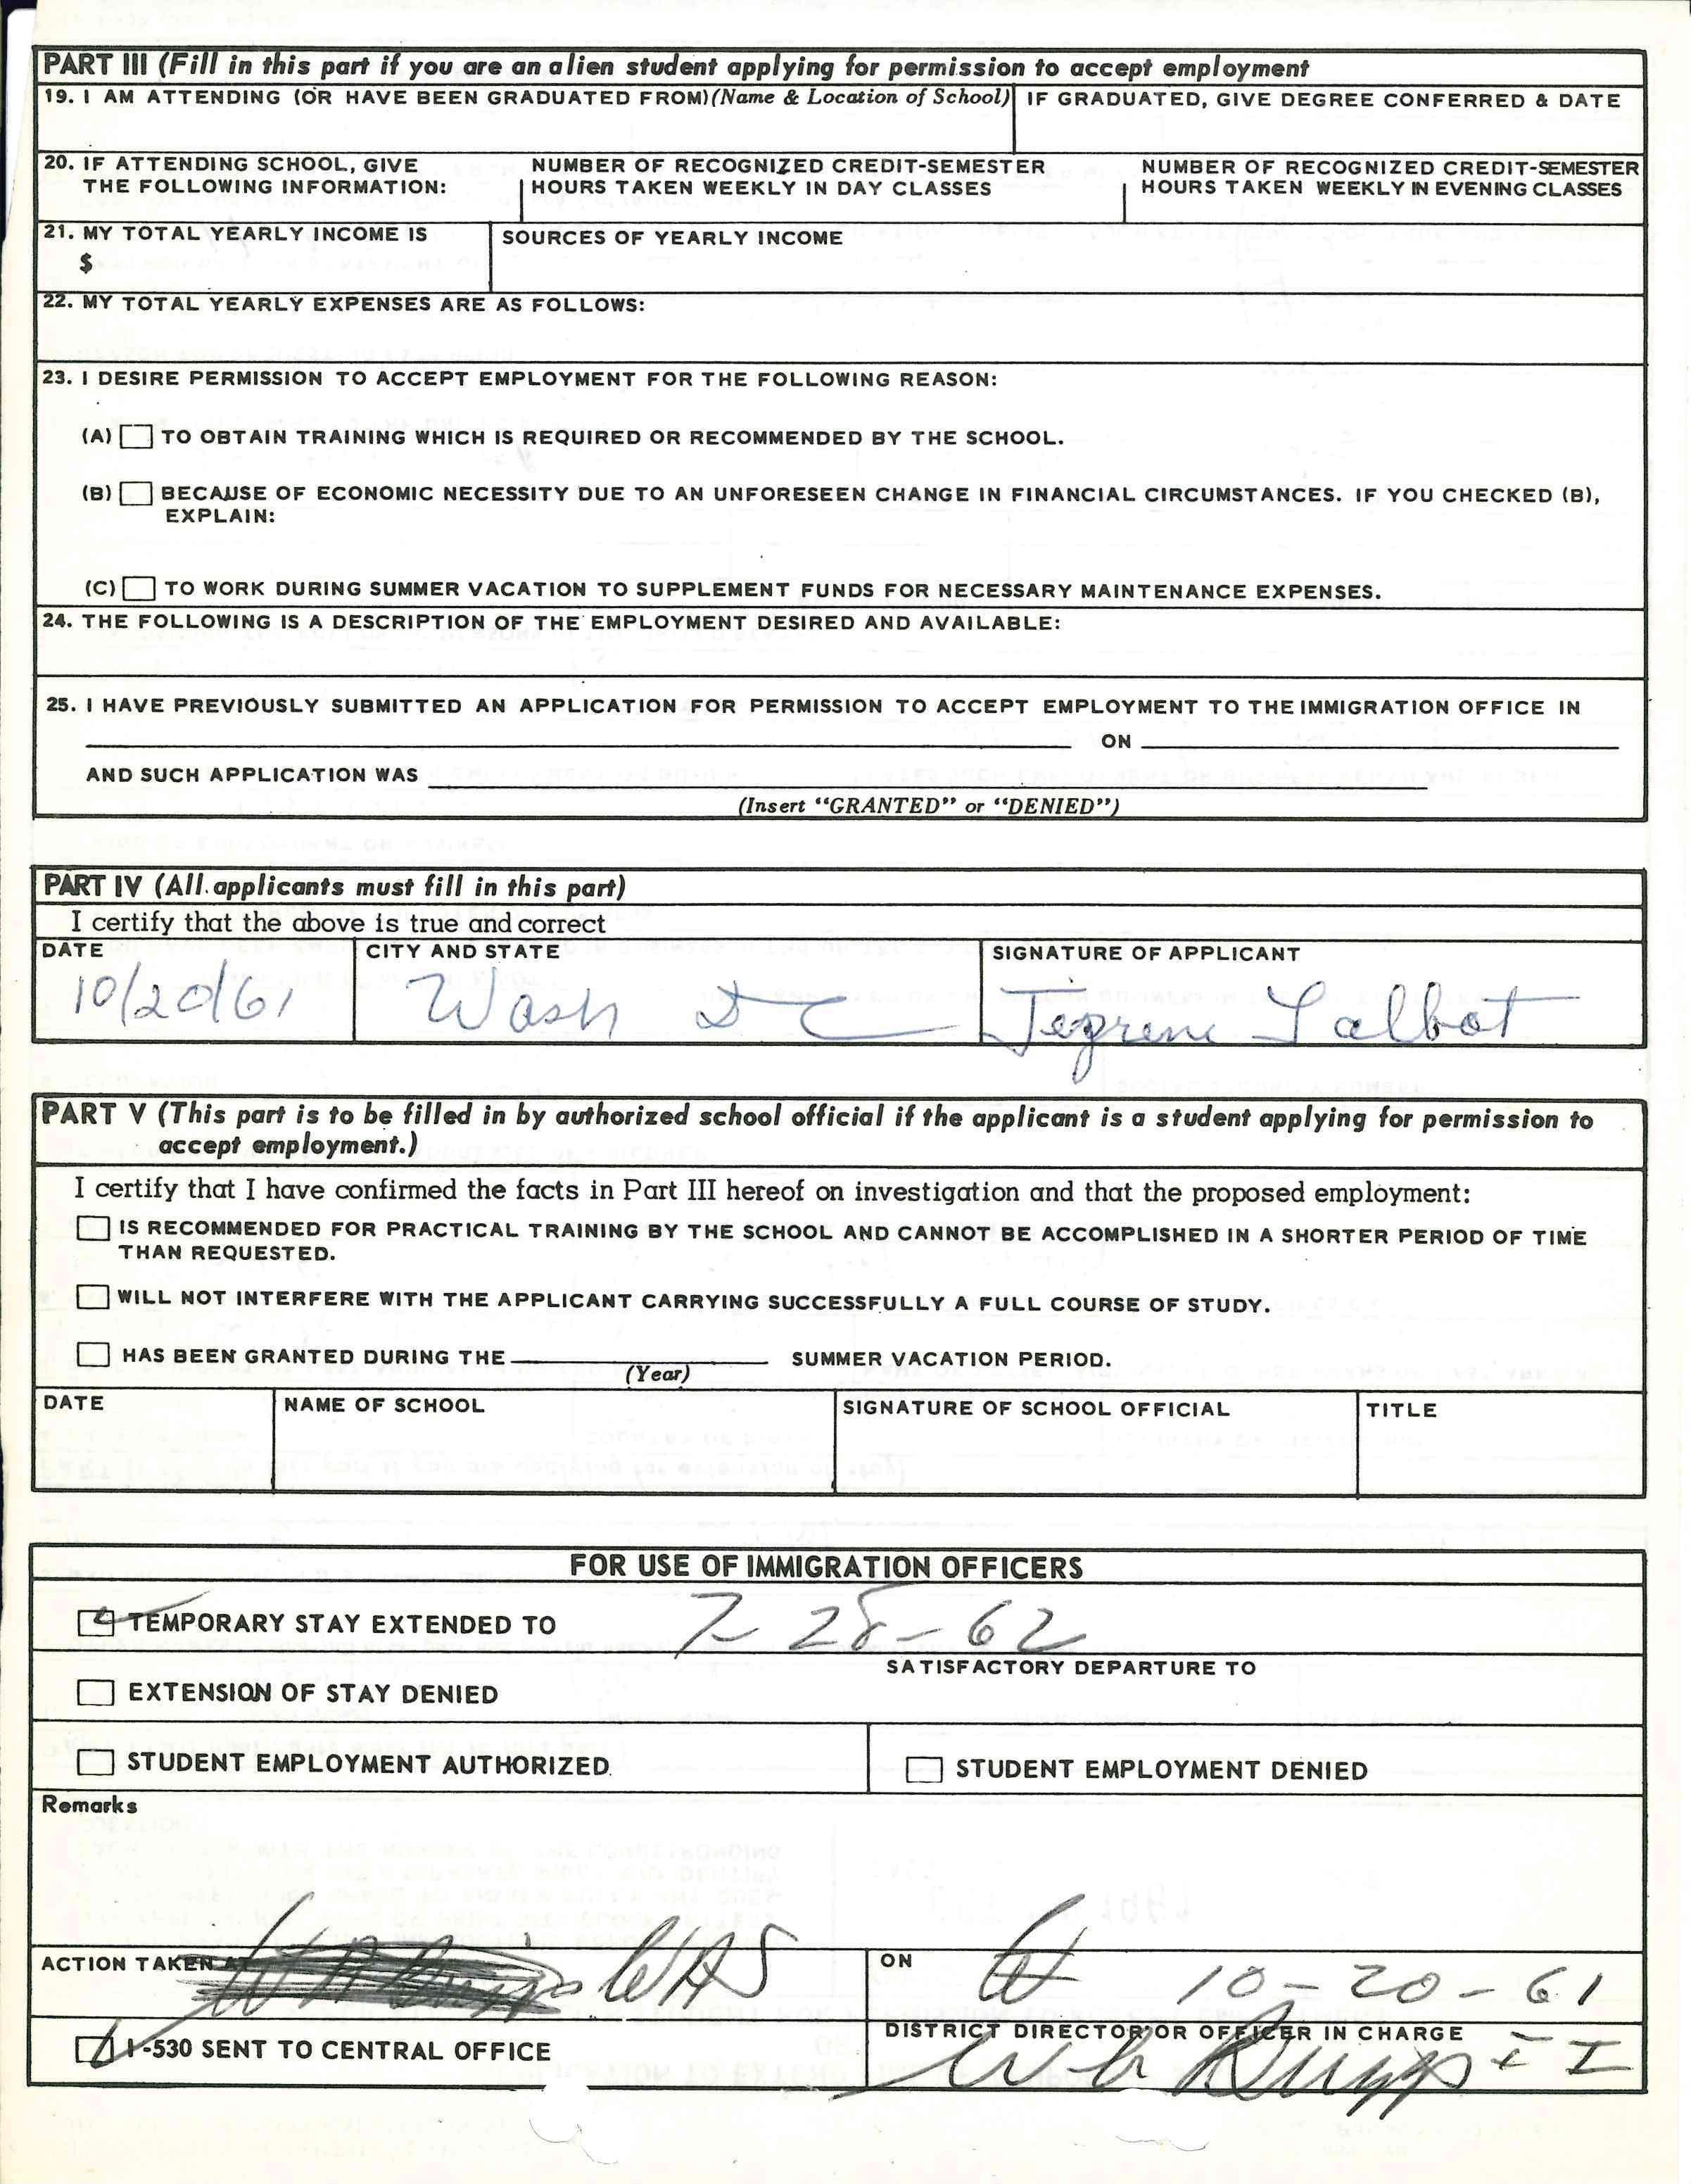 PART III (Fill in this part if you are an alien student applying for permission to accept employment
19. I AM ATTENDING (OR HAVE BEEN GRADUATED FROM)(Name & Location of School) IF GRADUATED, GIVE DEGREE CONFERRED & DATE
20. IF ATTENDING SCHOOL, GIVE THE FOLLOWING INFORMATION:
NUMBER OF RECOGNIZED CREDIT-SEMESTER HOURS TAKEN WEEKLY IN DAY CLASSES
NUMBER OF RECOGNIZED CREDIT-SEMESTER HOURS TAKEN WEEKLY IN EVENING CLASSES
21. MY TOTAL YEARLY INCOME IS
$
SOURCES OF YEARLY INCOME
22. MY TOTAL YEARLY EXPENSES ARE AS FOLLOWS:
23. I DESIRE PERMISSION TO ACCEPT EMPLOYMENT FOR THE FOLLOWING REASON:
(A) TO OBTAIN TRAINING WHICH IS REQUIRED OR RECOMMENDED BY THE SCHOOL.
(B) BECAUSE OF ECONOMIC NECESSITY DUE TO AN UNFORESEEN CHANGE IN FINANCIAL CIRCUMSTANCES. IF YOU CHECKED (B),
EXPLAIN:
(C) TO WORK DURING SUMMER VACATION TO SUPPLEMENT FUNDS FOR NECESSARY MAINTENANCE EXPENSES.
24. THE FOLLOWING IS A DESCRIPTION OF THE EMPLOYMENT DESIRED AND AVAILABLE:
25. I HAVE PREVIOUSLY SUBMITTED AN APPLICATION FOR PERMISSION TO ACCEPT EMPLOYMENT TO THE IMMIGRATION OFFICE IN
ON
AND SUCH APPLICATION WAS
(Insert "GRANTED" or "DENIED")
PART IV (All applicants must fill in this part)
I certify that the above is true and correct
DATE CITY AND STATE SIGNATURE OF APPLICANT
10/20/61 Wash D C Talbot
PART V (This part is to be filled in by authorized school official if the applicant is a student applying for permission to
accept employment.)
I certify that I have confirmed the facts in Part III hereof on investigation and that the proposed employment:
IS RECOMMENDED FOR PRACTICAL TRAINING BY THE SCHOOL AND CANNOT BE ACCOMPLISHED IN A SHORTER PERIOD OF TIME
THAN REQUESTED.
WILL NOT INTERFERE WITH THE APPLICANT CARRYING SUCCESSFULLY A FULL COURSE OF STUDY.
HAS BEEN GRANTED DURING THE SUMMER VACATION PERIOD.
(Year)
DATE NAME OF SCHOOL SIGNATURE OF SCHOOL OFFICIAL TITLE
FOR USE OF IMMIGRATION OFFICERS
TEMPORARY STAY EXTENDED TO 7 28-62
SATISFACTORY DEPARTURE TO
EXTENSION OF STAY DENIED
STUDENT EMPLOYMENT AUTHORIZED STUDENT EMPLOYMENT DENIED
Remarks
ACTION TAKEN AT WAS ON 10-20-61
I-530 SENT TO CENTRAL OFFICE
DISTRICT DIRECTOR OR OFFICER IN CHARGE